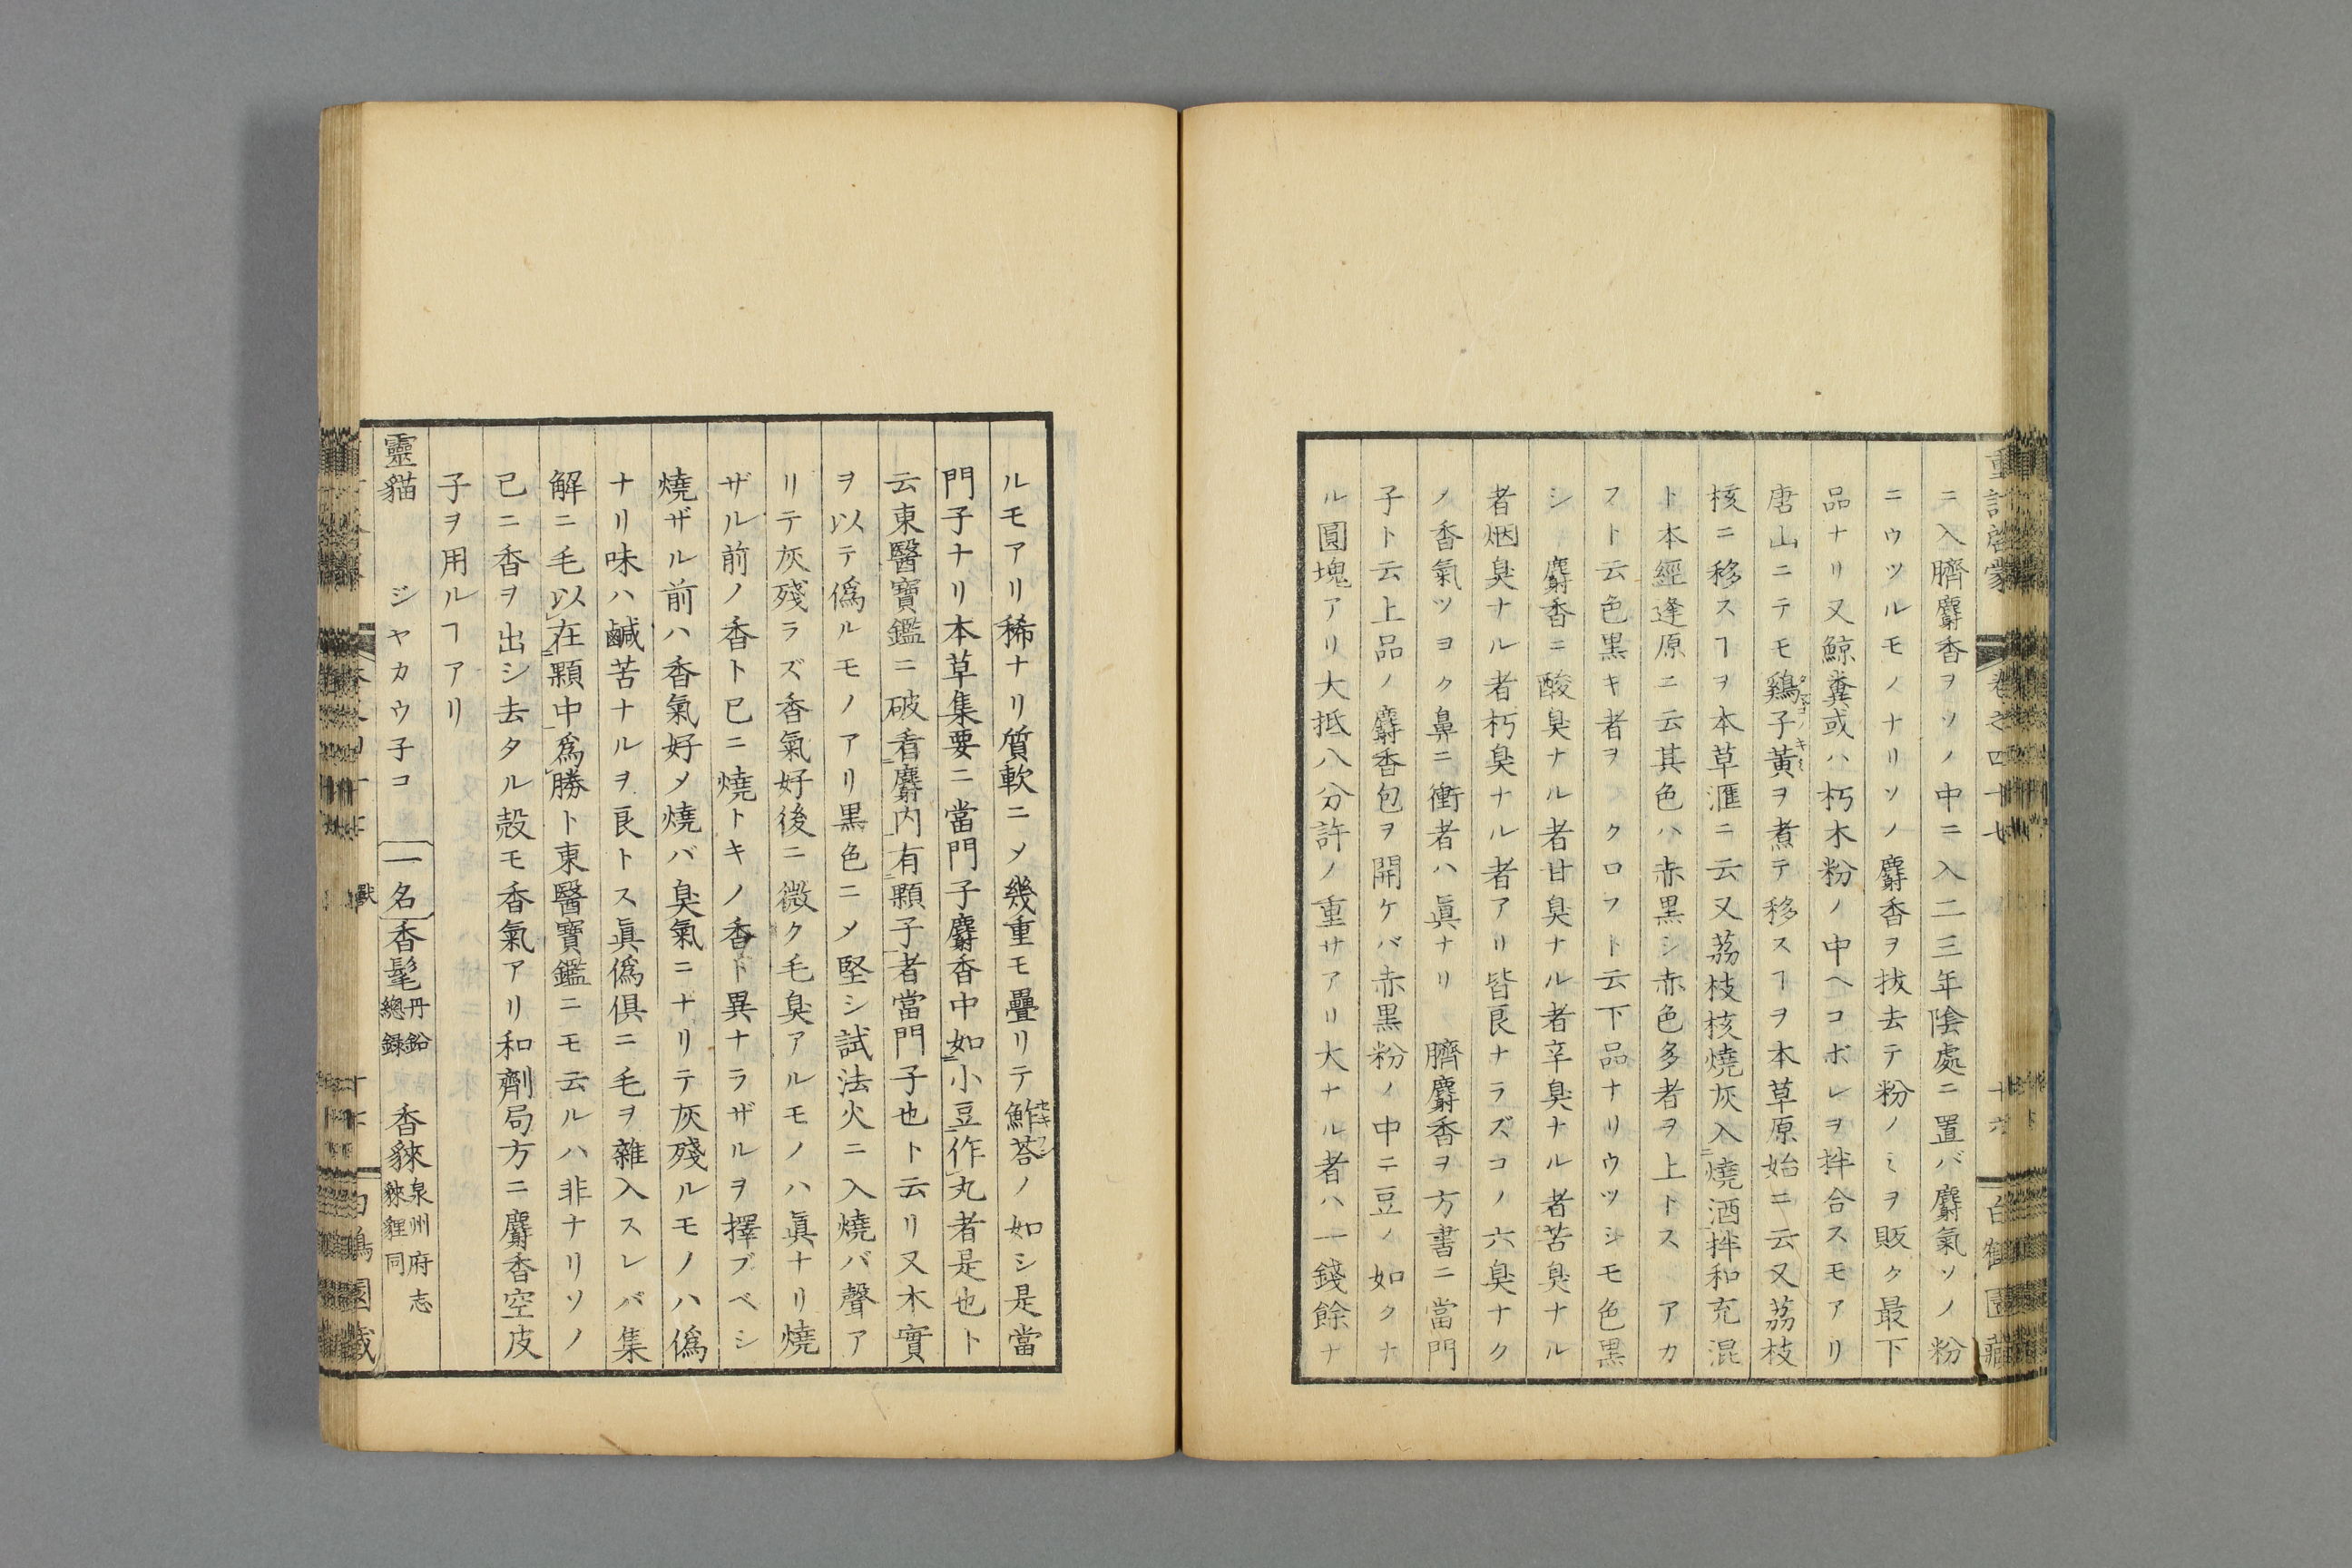 ニ入臍麝香ヲソノ中ニ入二三年陰處ニ置バ麝氣ソノ粉
ニウツルモノナリソノ麝香ヲ抜去テ粉ノミヲ販ク最下
品ナリ又鯨糞或ハ朽木粉ノ中ヘコボレヲ拌合スモアリ
唐山ニテモ鷄子黃ヲ煮テ移スヿヲ本草原始ニ云又荔枝
核ニ移スヿヲ本草滙ニ云又荔枝核燒灰入燒酒拌和充混
ト本經逢原ニ云其色ハ赤黒シ赤色多者ヲ上トス アカ
フト云色黒キ者ヲ クロフト云下品ナリウツシモ色黒
シ 麝香ニ酸臭ナル者甘臭ナル者辛臭ナル者苦臭ナル
者烟臭ナル者朽臭ナル者アリ皆良ナラズコノ六臭ナク
ノ香氣ツヨク鼻ニ衝者ハ眞ナリ 臍麝香ヲ方書ニ當門
子ト云上品ノ麝香包ヲ開ケバ赤黒粉ノ中ニ豆ノ如クナ
ル圓塊アリ大抵八分許ノ重サアリ大ナル者ハ一錢餘ナ
ルモアリ稀ナリ質軟ニメ幾重モ疊リテ鮓荅ノ如シ是當
門子ナリ本草集要ニ當門子麝香中如小豆作丸者是也ト
云東醫寶鑑ニ破看麝内有顆子者當門子也ト云リ又木實
ヲ以テ僞ルモノアリ黒色ニメ堅シ試法火ニ入燒バ聲ア
リテ灰殘ラズ香氣好後ニ微ク毛臭アルモノハ眞ナリ燒
ザル前ノ香ト已ニ燒トキノ香ト異ナラザルヲ擇ブベシ
燒ザル前ハ香氣好メ燒バ臭氣ニナリテ灰殘ルモノハ僞
ナリ味ハ鹹苦ナルヲ良トス眞僞俱ニ毛ヲ雜入スレバ集
解ニ毛以在顆中爲勝ト東醫寶鑑ニモ云ルハ非ナリソノ
已ニ香ヲ出シ去タル殼モ香氣アリ和劑局方ニ麝香空皮
子ヲ用ルヿアリ
靈貓 ジヤカウ子コ 一名 香髦 丹鉛總錄 香貅 泉州府志貅貍同